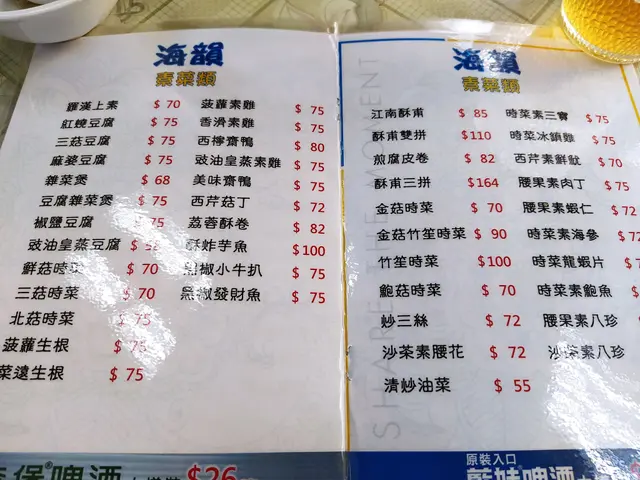 海韻
素菜類
羅漢上素 $70
紅燒豆腐 $75
三菇豆腐 $75
麻婆豆腐 $75
雜菜煲 $68
豆腐雜菜煲 $75
椒鹽豆腐 $75
豉油皇蒸豆腐
鮮菇時菜 $70
三菇時菜 $70
北菇時菜 $75
菠蘿生根 $75
菜遠生根 $75
菠蘿素雞 $75
香滑素雞 $75
西檸齋鴨 $80
豉油皇蒸素雞 $75
美味齋鴨 $75
西芹菇丁 $72
荔蓉酥卷 $82
酥炸芋魚 $100
黑椒小牛扒 $75
黑椒發財魚 $75
海韻
素菜類
江南酥甫 $85
酥甫雙拼 $110
煎腐皮卷 $82
酥甫三拼 $164
金菇時菜 $70
金菇竹笙時菜 $90
竹笙時菜 $100
鮑菇時菜 $70
炒三絲 $72
沙茶素腰花 $72
清炒油菜 $55
時菜素三寶 $75
時菜冰鎖雞 $75
西芹素鮮魷 $70
腰果素肉丁 $75
腰果素蝦仁 $72
時菜素海參 $72
時菜龍蝦片 $
時菜素鮑魚 $
腰果素八珍 $
沙茶素八珍 $
SHARE THE MOMENT
啤酒 $26
原裝入口
藍妹®啤酒